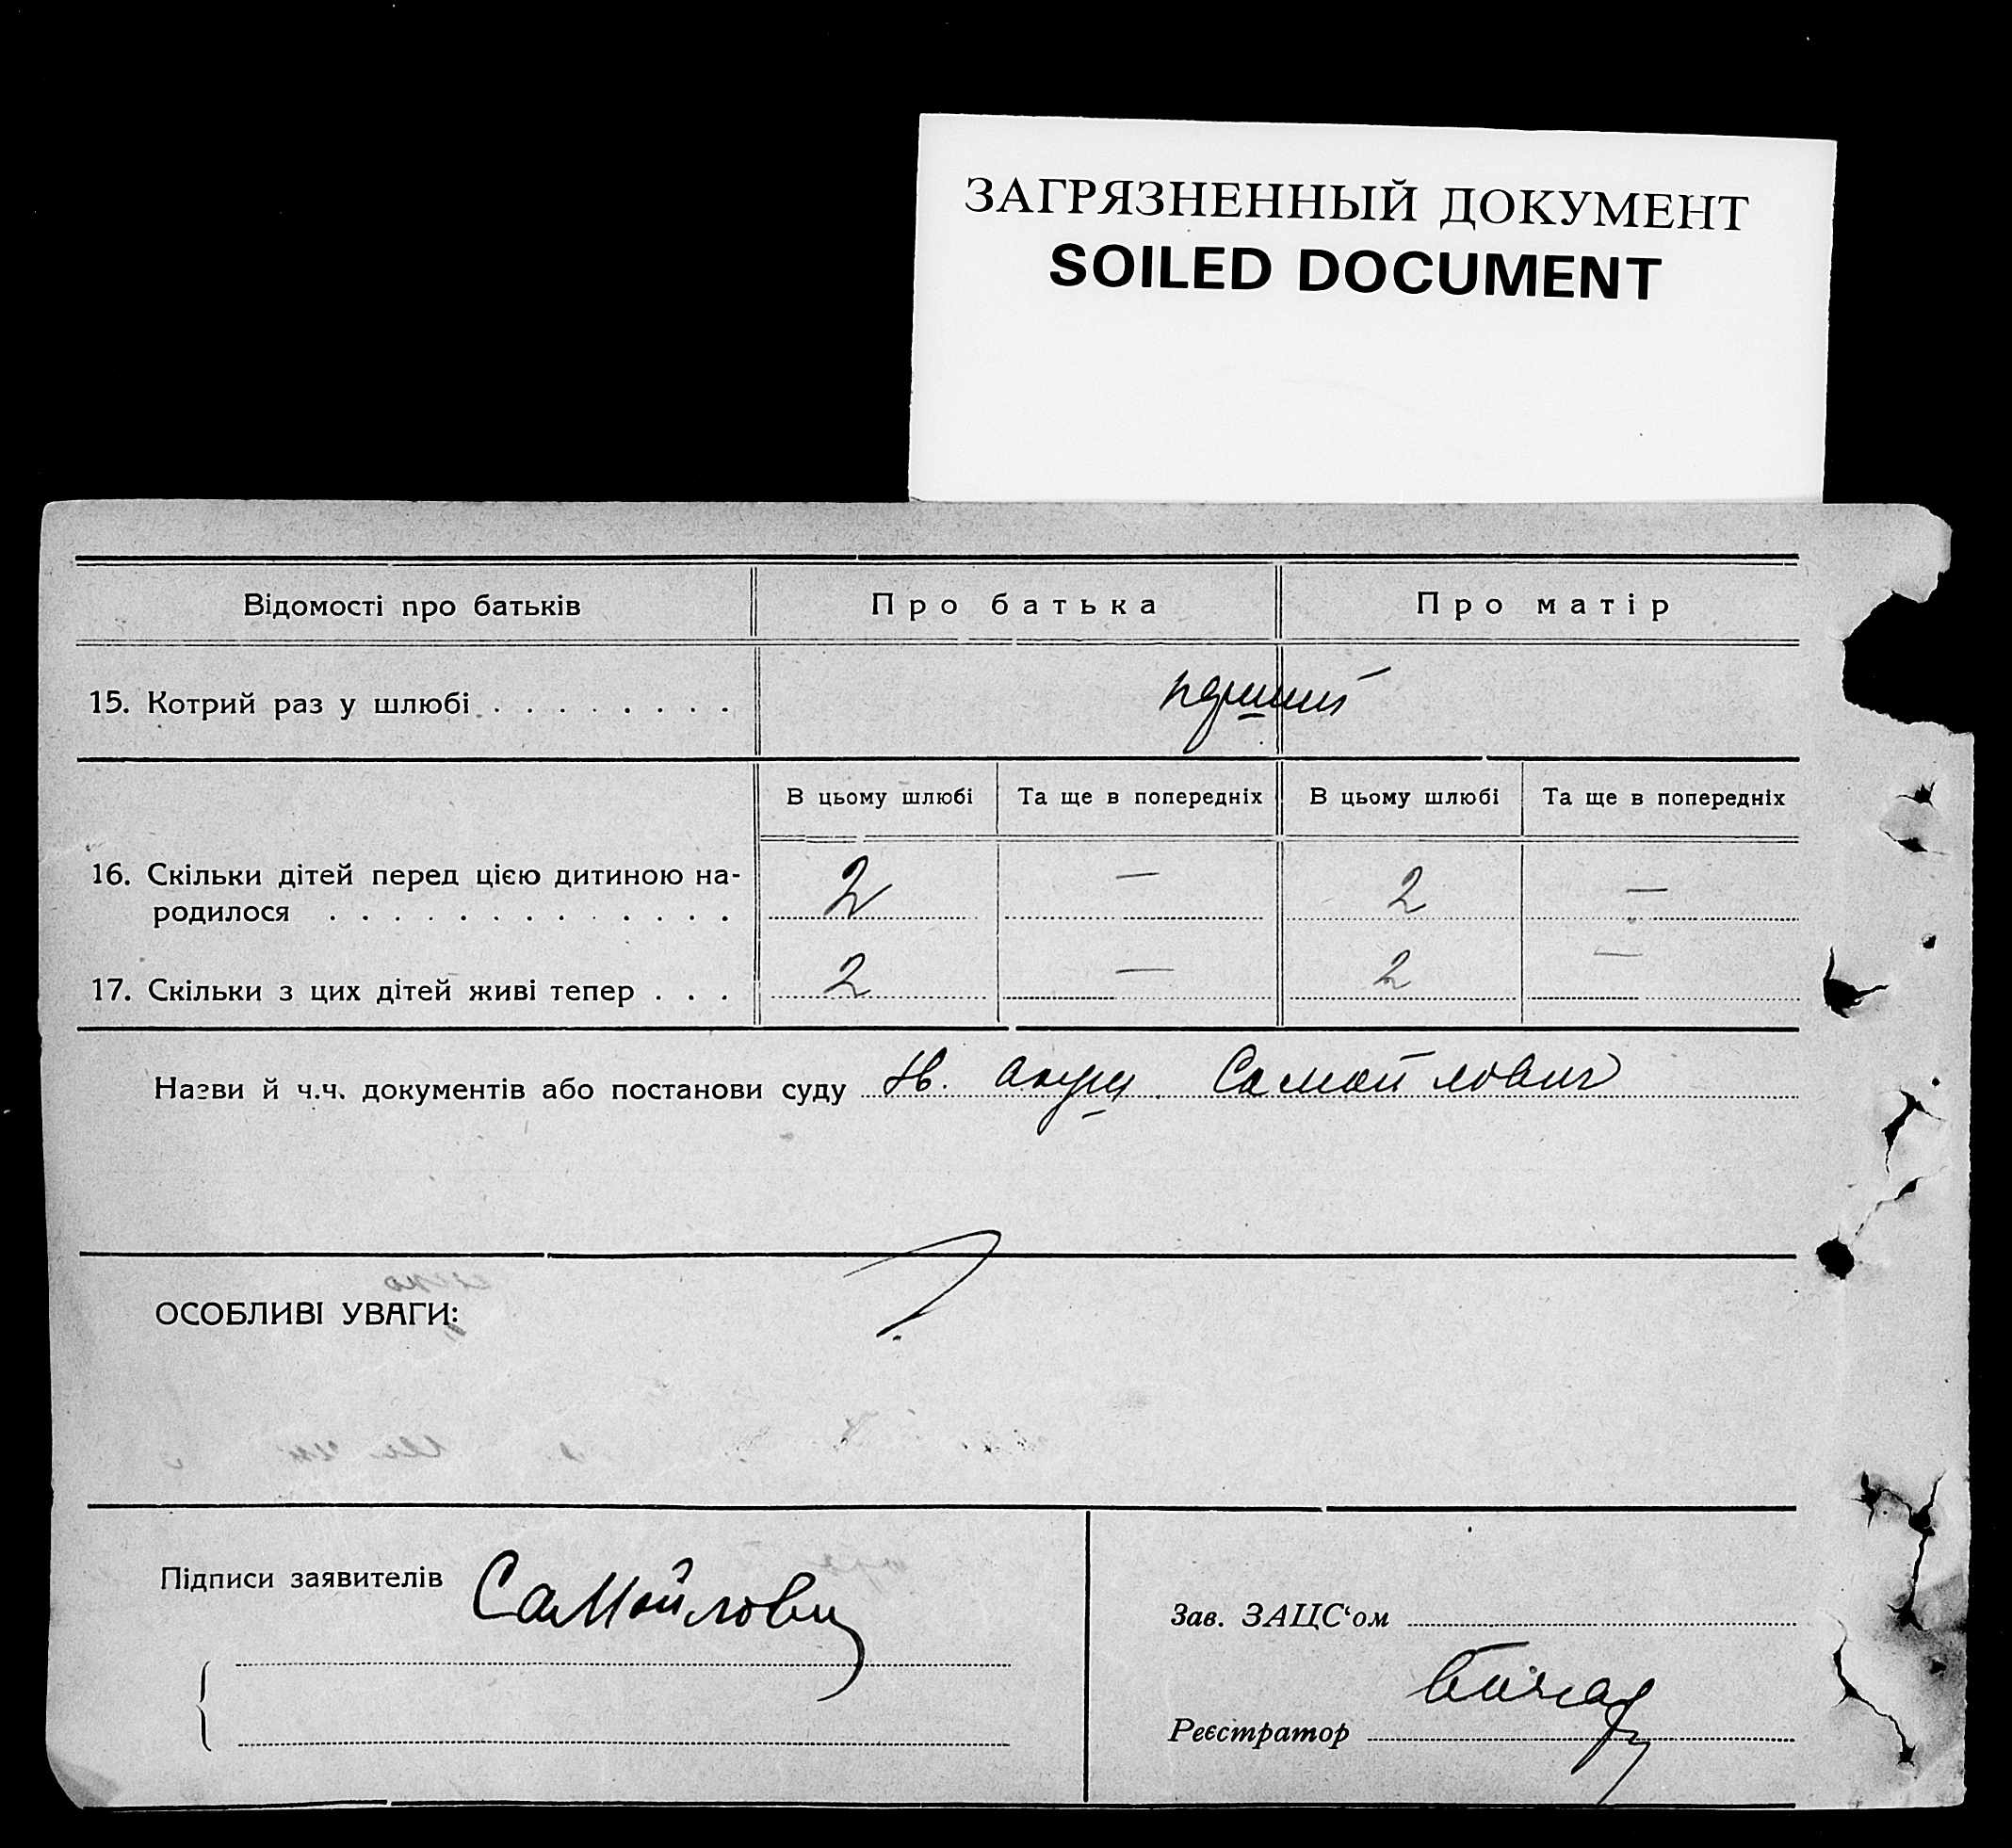 ЗАГРЯЗНЕННЫЙ ДОКУМЕНТ
SOILED DOCUMENT
Відомості про батьків Про батька Про матір
15. Котрий раз у шлюбі . . . . . . . . перший
В цьому шлюбі Та ще в попередніх В цьому шлюбі Та ще в попередніх
16. Скільки дітей перед цією дитиною на-
родилося . . . . . . . . . . . . . 2 — 2 —
17. Скільки з цих дітей живі тепер . . . 2 — 2 —
Назви й ч.ч. документів або постанови суду Самойлович
ОСОБЛИВІ УВАГИ:
Підписи заявителів Самойлович
Зав. ЗАЦС‘ом
Реєстратор